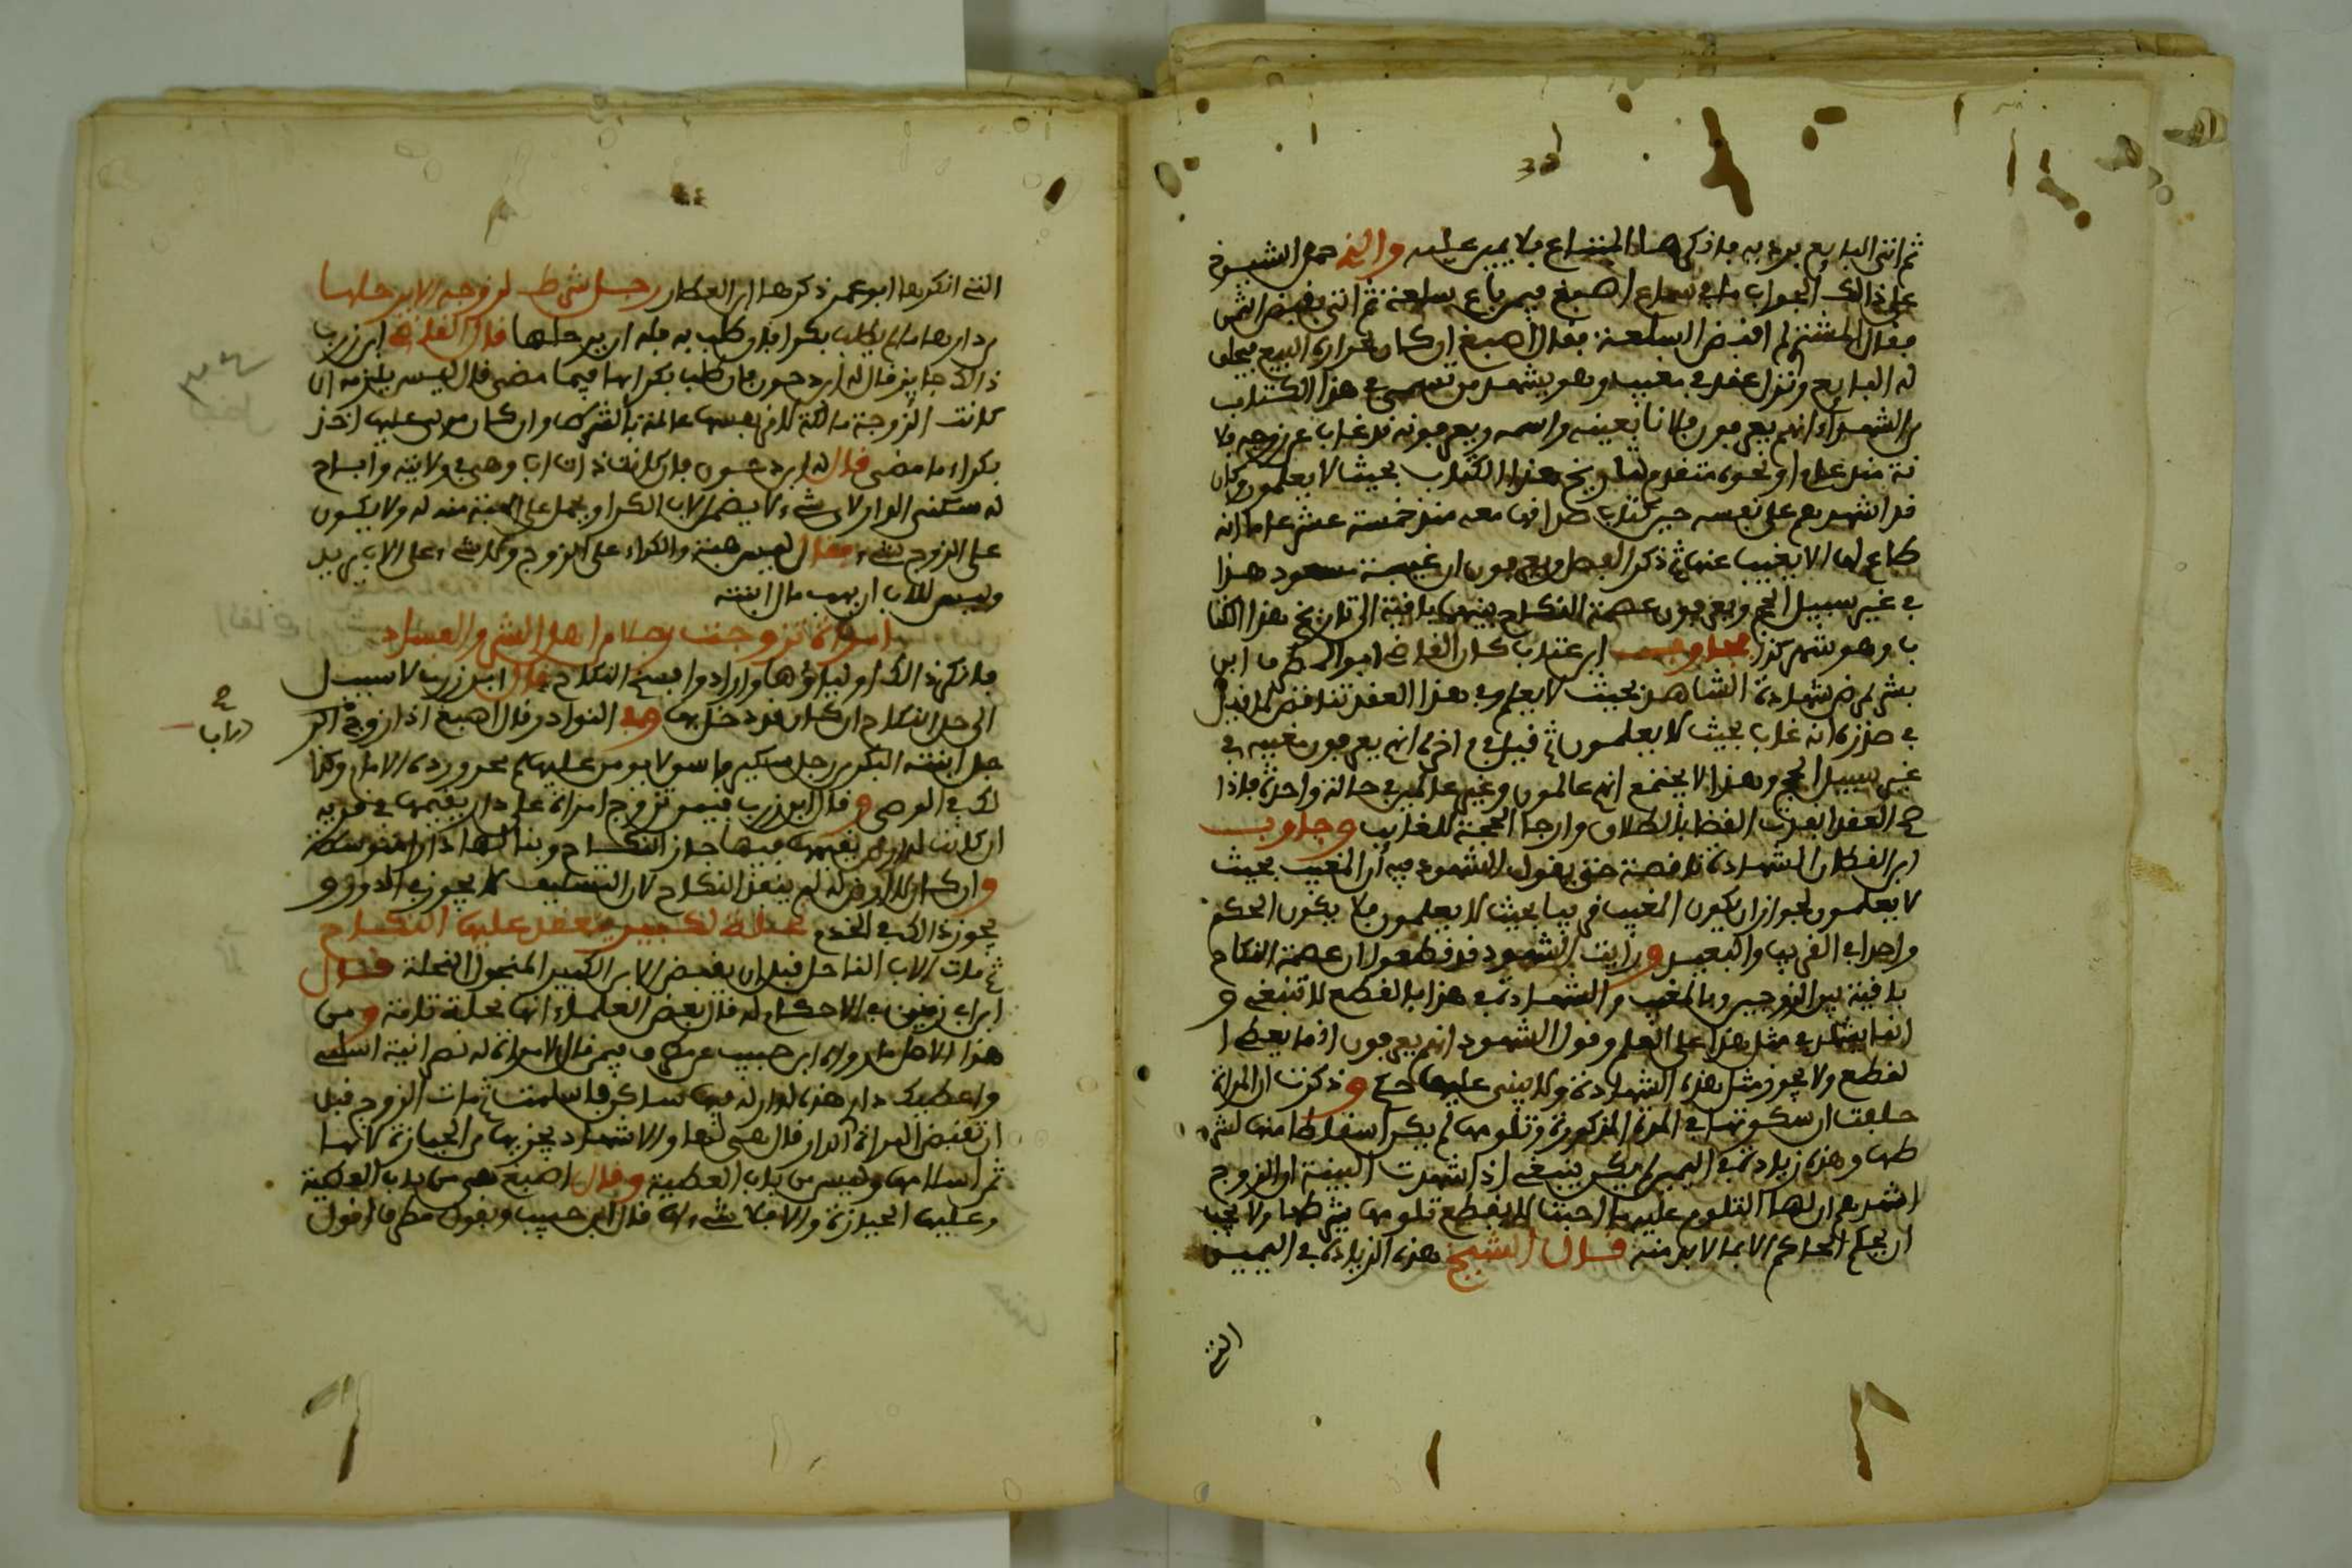 ثم اتى البايع يريد به ما ذكر هذا المتناع فلا يمين عليه والذي حمل الشيوخ
على ذالك الجواب ما في سماع اصبغ فيمن باع سلعة ثم اتى بقبض الثمن
فقال المشتري لم اقبض السلعة فقال اصبغ ان كان بحرارة البيع فيحلف
له البايع ونزل عقد في مغيب وهو يشهد من تسمى في هذا الكتاب
من الشهداء انهم يعرفون فلانا بعينه واسمه ويعرفونه قد غاب عن زوجه فلا
نة منذ عام او نحوه متقدم لتاريخ هذا الكتاب بحيث لا يعلمون وكان
قد اشهدهم على نفسه حين كتاب صداقها معه منذ خمسة عشر عاما انه
طاع لها الا يغيب عنها ثم ذكر الفصل ويعرفون ان غيبة مسعود هذا
في غير سبيل الحج ويعرفون عصمة النكاح بينهما باقية الى تاريخ هذا الكتا
ب وهو شهر كذا فجاوب ابن عتاب كان القاضي ابو المطرف ابن
بشر لم يرض شهادة الشاهد بحيث لا يعلم وفي هذا العقد تناقض لما قيل
في صدره انه غاب بحيث لا يعلمون ثم قيل في اخره انهم يعرفون مغيبه في
غير سبيل الحج وهذا لا يجتمع انهم عالمون وغير عالمين في حالة واحدة فاذا
صح العقد انفذت القضا بالطلاق وارجا الحجة للغايب وجاوب
ابن القطان الشهادة ناقصة حتى يقول الشهود فيه ان المغيب بحيث
لا يعلمون لجواز ان يكون المغيب قريبا بحيث لا يعلمون فلا يكون الحكم
واحدا في القريب والبعيد ورايت الشهود قد قطعوا ان عصمة النكاح
باقية بين الزوجين وبالمغيب والشهادة في هذا بالقطع لا تنبغي و
انما يشهد في مثل هذا على العلم وقول الشهود انهم يعرفون انما يعطي ا
لقطع ولا يجوز مثل هذه الشهادة ولا يبنى عليها حكم وذكرت ان المراة
حلفت ان سكوتها في المدة المذكورة وتلومها لم يكن اسقاطا منها لشر
طها وهذه زيادة في اليمين لم يكن ينبغي اذا شهدت البينة ان الزوج
اشهدهم ان لها التلوم عليه ما احبت لا يقطع تلومها شرطها ولا يجب
ان يحكم الحاكم الا بما لا بد منه قال الشيخ هذه الزيادة في اليمين
التي
التي انكرها ابو عمر ذكرها ابن العطار رجل شرط لزوجه الا يرحلها
من دارها ما لم يطلب بكرا فان طلب به فله ان يرحلها قال القاضي ابن زرب
ذالك جايز قال له ابن دحون فان طلب بكرايها فيما مضى قال ليس يلزمه ان
كانت الزوجة مالكة لنفسها عالمة بالشرط وان كان مولى عليها اخذ
بكراء ما مضى قال له ابن دحون فان كانت ذات اب وهي في ولايته واباح
له سكنى الدار لاي شيء لا يضمن الاب الكرا ويحمل على الهبة منه له ولا يكون
على الزوج شيء فقال ليس هبة والكراء على الزوج ولا شيء على الاب يريد
وليس للاب ان يهب مال ابنته
امراة تزوجت رجلا من اهل الشر والفساد
فانكر ذالك اولياؤها وارادوا فسخ النكاح قال ابن زرب لا سبيل
الى حل النكاح ان كان قد دخل بها وفي النوادر قال اصبغ اذا زوج الر
جل ابنته البكر من رجل سكير فاسق لا يومن عليها لم يجز ورده الامام وكذا
لك في الوصي وقال ابن زرب فيمن تزوج امراة على دار يقيمها في قريه
ان كانت له ارض يقيمها فيها جاز النكاح وبنا لها دارا متوسطة
وان كان لا ارض له لم ينعقد النكاح لان التكليف لا يجوز في الدور و
يجوز ذالك في الخدم نحلة لكبير يعقد عليها النكاح
ثم مات الاب الناحل قبل ان يقبض الابن الكبير المنحول النحلة قال
ابن ابي زمنين في الاحكام له قال بعض العلماء انها نحلة تامة ومن
هذا الاصل ما رواه ابن حبيب عن مطرف فيمن قال لامراة له نصرانية اسلمي
واعطيك داري هذه لدار له فيها ساكن فاسلمت ثم مات الزوج قبل
ان تقبض المراة الدار قال هي لها والاشهاد يجزيها من الحيازة لانها
ثمن اسلامها وليس من باب العطية وقال اصبغ هي من باب العطية
وعليها الحيازة والا فلا شيء لها قال ابن حبيب وبقول مطرف اقول